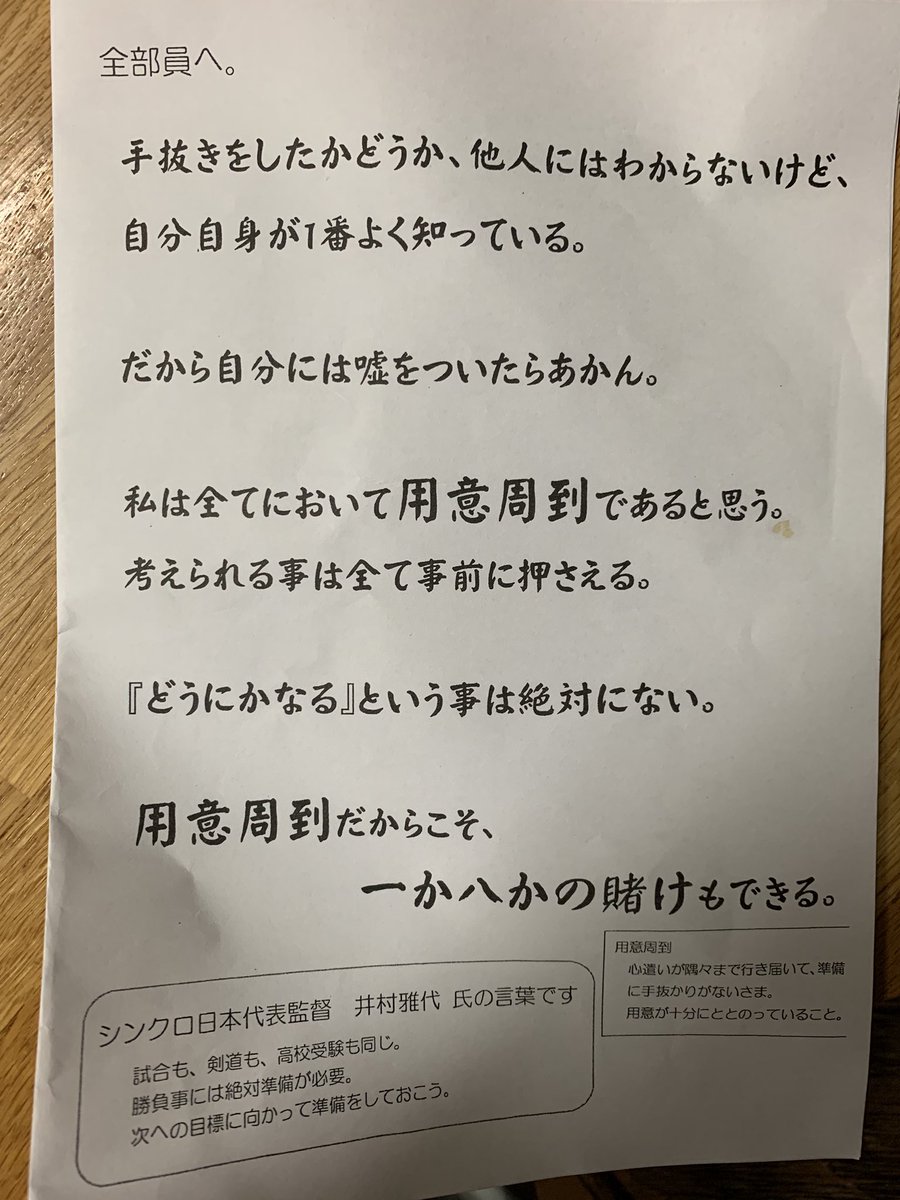 全部員へ。
手抜きをしたかどうか、他人にはわからないけど、
自分自身が1番よく知っている。
だから自分には嘘をついたらあかん。
私は全てにおいて用意周到であると思う。
考えられる事は全て事前に押さえる。
『どうにかなる』という事は絶対にない。
用意周到だからこそ、
一か八かの賭けもできる。
用意周到
心遣いが隅々まで行き届いて、準備
に手抜かりがないさま。
用意が十分にととのっていること。
シンクロ日本代表監督　井村雅代 氏の言葉です
試合も、剣道も、高校受験も同じ。
勝負事には絶対準備が必要。
次への目標に向かって準備をしておこう。